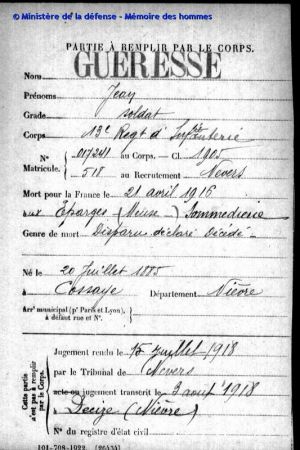 © Ministère de la défense - Mémoire des hommes
PARTIE À REMPLIR PAR LE CORPS.
GUERESSE
Nom
Prénoms Jean
Grade soldat
Corps 13e Regt d' Infanterie
N° 017241 au Corps. — Cl. 1905
Matricule. 518 au Recrutement Nevers
Mort pour la France le 21 avril 1916
aux Eparges (Meuse) Sommedieue
Genre de mort Disparu déclaré Décédé
Né le 20 Juillet 1885
à Cossaye Département Nièvre
Arrt municipal (pr Paris et Lyon),
à défaut rue et N°.
Cette partie
n'est pas à remplir
par le Corps.
Jugement rendu le 15 juillet 1918
par le Tribunal de Nevers
acte ou jugement transcrit le 3 août 1918
à Decize (Nièvre)
N° du registre d'état civil
101-708-1922. [26434]